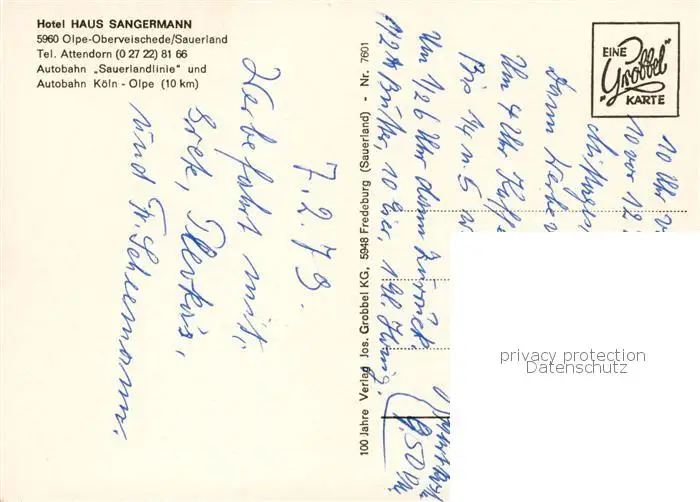 Hotel HAUS SANGERMANN
5960 Olpe-Oberveischede/Sauerland
Tel. Attendorn (0 27 22) 81 66
Autobahn „Sauerlandlinie" und
Autobahn Köln - Olpe (10 km)
7.2.79.
Werbefahrt mit,
und Fr. Schürmann.
100 Jahre Verlag Jos. Grobbel KG, 5948 Fredeburg (Sauerland) - Nr. 7601
EINE
„Grobbel"
KARTE
10 Uhr
10 vor 12
Dann Werbe
Um 4 Uhr Kaffe
Bis 1/4 n. 5
Um 1/2 6 Uhr dann Zurück.
1/2 Butter, 10 Eier, 1 Gl. Honig.
9.50
privacy protection
Datenschutz